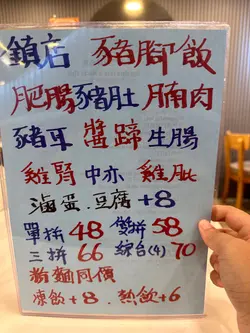 鎮店 豬腳飯
肥腸 豬肚 腩肉
豬耳 醬蹄 生腸
雞腎 中亦 雞肶
滷蛋.豆腐 +8
單拼 48 雙拼 58
三拼 66 綜合(4) 70
粉麵同價
凍飲+8. 熱飲+6